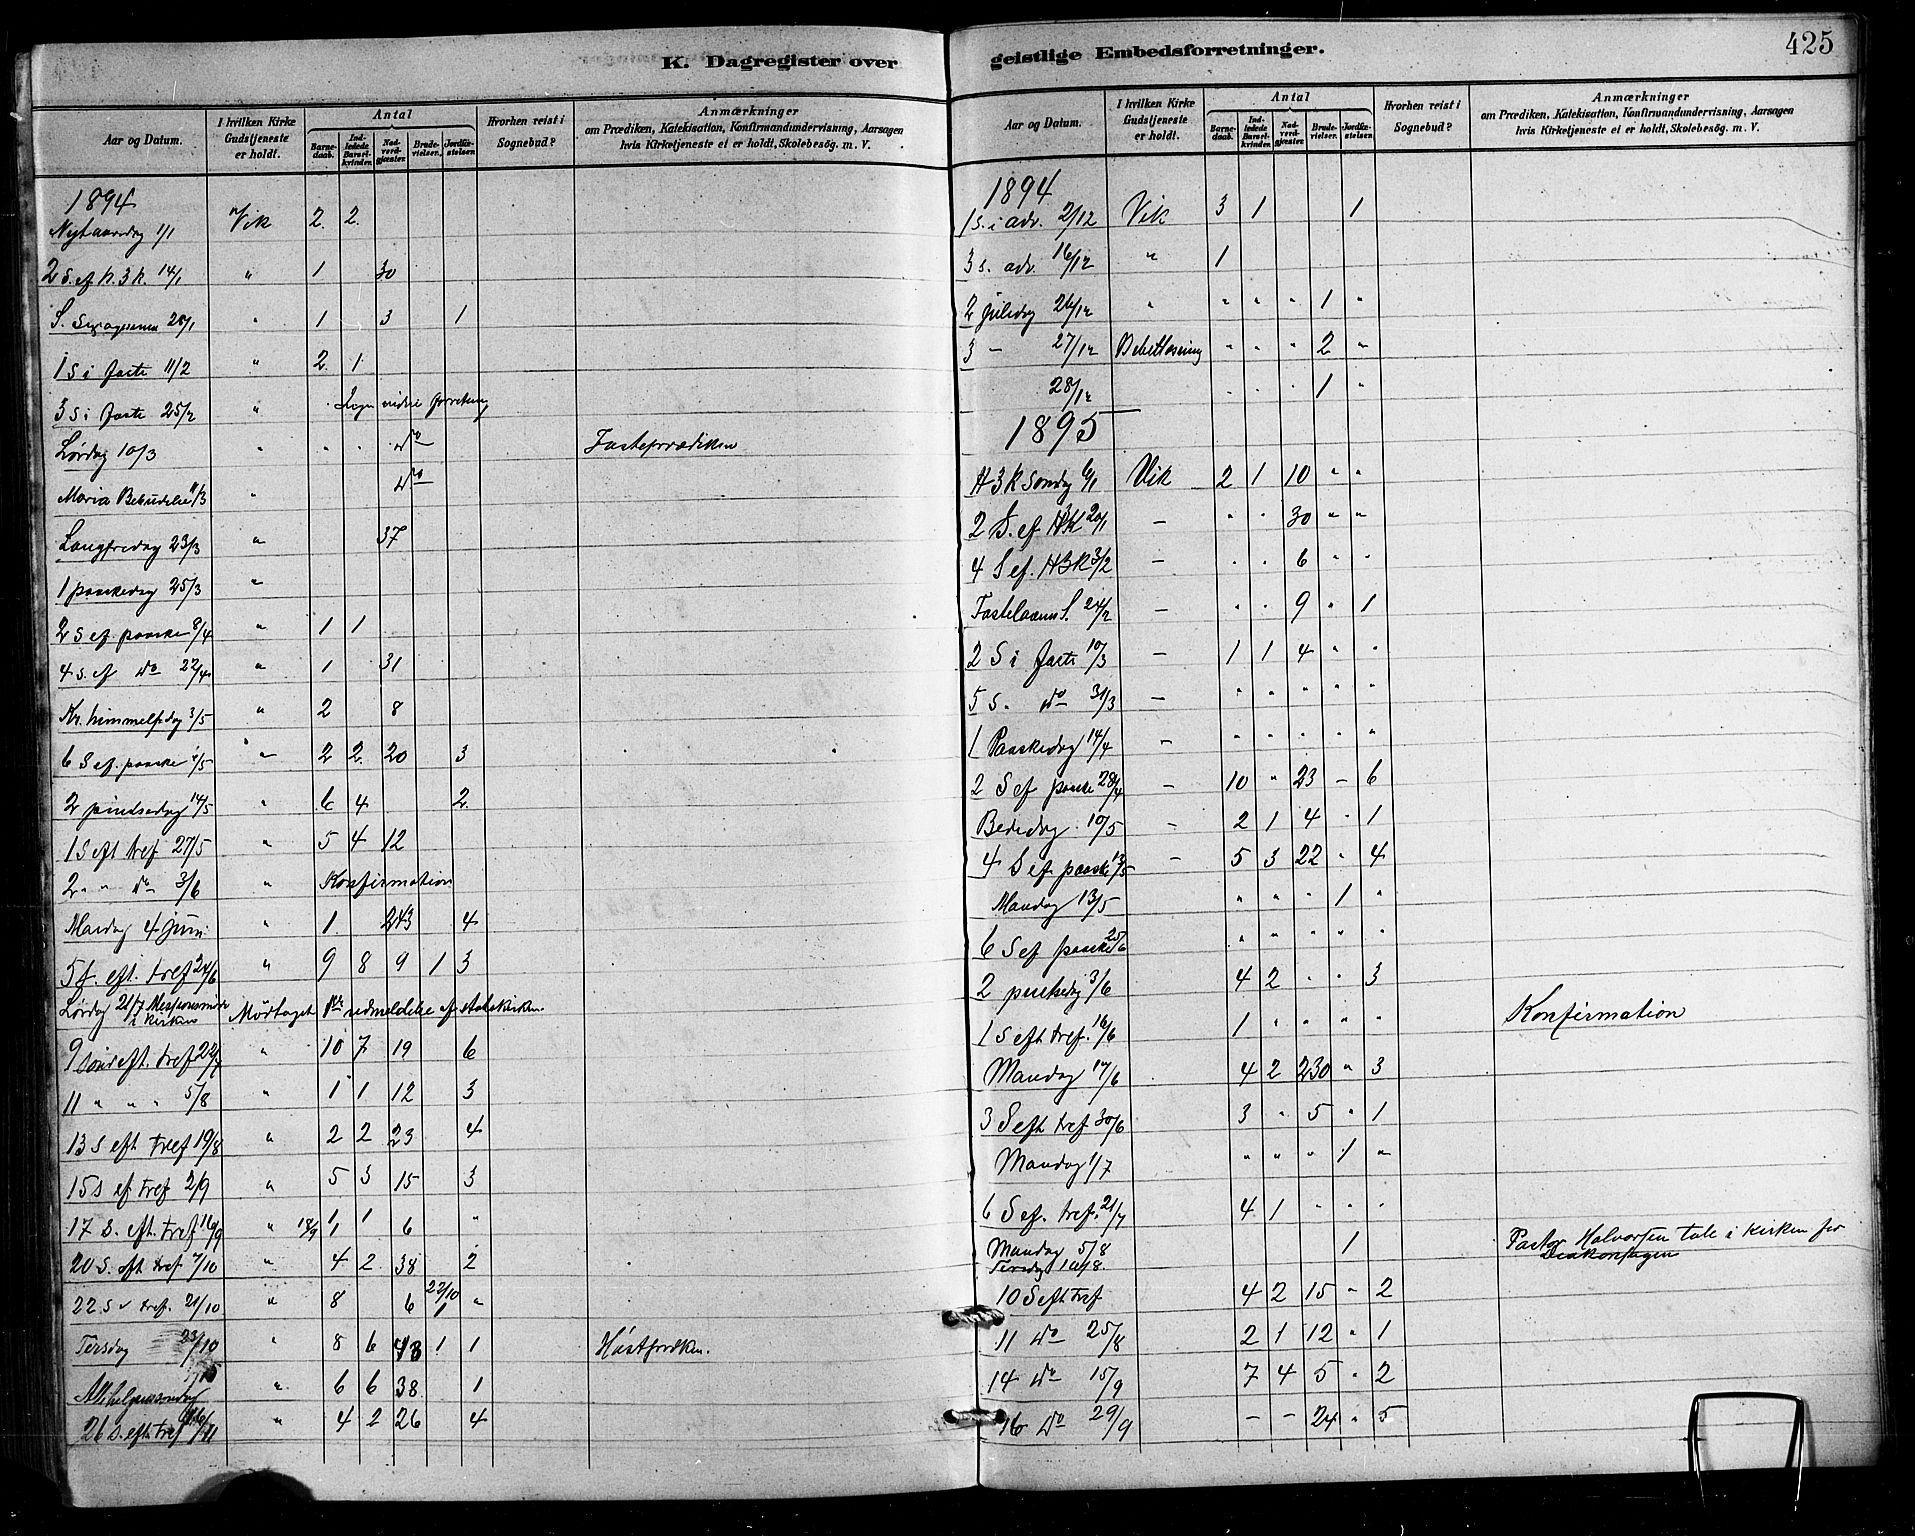 K. Dagregister over
Aar og Datum. I hvilken Kirke Gudstjeneste er holdt. Antal Barnedaab. Indledede Barselkvinder. Nadverdgjæster. Brudevielser. Jordfæstelsen Hvorhen reist i Sognebud? Anmærkninger om Prædiken, Katekisation, Konfirmandundervisning, Aarsagen hvis Kirketjeneste ei er holdt, Skolebesøg. m. V.
1894
Nytaarsdag 1/1 Vik 2. 2.
2 S. ef. h. 3 k. 14/1 " 1 30
S. Sexagesima 28/1 " 1 3 1
1 S i faste 11/2 " 2. 1
3 S i faste 25/2 " forretning
Lørdag 10/3 " " " do Fasteprædiken
Maria Bebudelse 11/3 " do
Langfredag 23/3 " 37
1 paaskedag 25/3 "
2 S ef. paaske 8/4 " 1 1
4 S. ef do 22/4 " 1 31
Kr. himmelfdag 3/5 " 2 8
6 S ef. paaske /5 " 2 2 20 3
2 pindsedag 14/5 " 6 4 2.
1 S eft tref 27/5 " 5 4 12
2 " " do 3/6 " Konfirmation
Mandag 4 juni " 1. 243 4
5 S. eft. tref 24/6 " 9 8 9 1 3
Lørdag 21/7 i kirken Modtaget udmeldelse af statskirken.
9 Sønd eft. tref 22/7 " 10 7 19 6
11 " " " 5/8 " 1 1 12 3
13 S eft tref 19/8 " 2 2 23 4
15 S ef tref 2/9 " 5 3 15 3
17 S. eft. tref 16/9 " 18/9 1/1 1 6 "
20 S. eft tref 7/10 " 4 2 38 2
22 S " tref. 21/10 " 8 6 22/10 1 "
Tirsdag 23/10 " 8 6 43 1 1 Høstprdken.
Allehelgenssondag " 6 6 38 1
26 S. eft. tref /11 " 4 2 26 4
geistlige Embedsforretninger.
425
Aar og Datum. I hvilken Kirke Gudstjeneste er holdt. Antal Barnedaab. Indledede Barselkvinder. Nadverdgjæster. Brudevielser. Jordfæstelsen Hvorhen reist i Sognebud? Anmærkninger om Prædiken, Katekisation, Konfirmandundervisning, Aarsagen hvis Kirketjeneste ei er holdt, Skolebesøg. m. V.
1894
1 S. i adv. 2/12 Vik 3 1 1
3 s. adv. 16/12 " 1
2 juledag 26/12 " " " " 1 "
3 - 27/12 " " " 2 "
28/12 " " " 1 "
1895
H 3 K søndag 6/1 Vik 2 1 10 " "
2 S. ef H3K 20/1 - " " 30 " "
4 S ef. H3K 3/2 - " " 6 " "
Fastelavns S. 24/2 - " " 9 " 1
2 S i faste 10/3 - 1 1 4 " "
5 S. do 31/3 - " " " " "
1 Paaskedag 14/4 - " " " " "
2 S ef paaske 28/4 - 10 " 23 - 6
Bededag 10/5 - 2 1 4 " 1
4 S ef. paaske 13/5 - 5 3 22 " 4
Mandag 13/5 " " " 1 "
6 S ef paaske " " " " "
2 pintsedag 3/6 4 2 " " 3
1 S eft tref. 16/6 1 " " " " Konfirmation
Mandag 17/6 4 2 230 " 3
3 S eft tref 30/6 3 " 5 " 1
Mandag 1/7 " " " 1 "
6 S ef. tref. 21/7 4 1 " " "
Mandag 5/8 1 Pastor Halvorsen tale i kirken for
Diakonsagen
10 S eft tref 4 2 15 " 2
11 do 25/8 2 1 12 " 1
14 do 15/9 7 4 5 " 2
16 do 29/9 - - 24 " 5